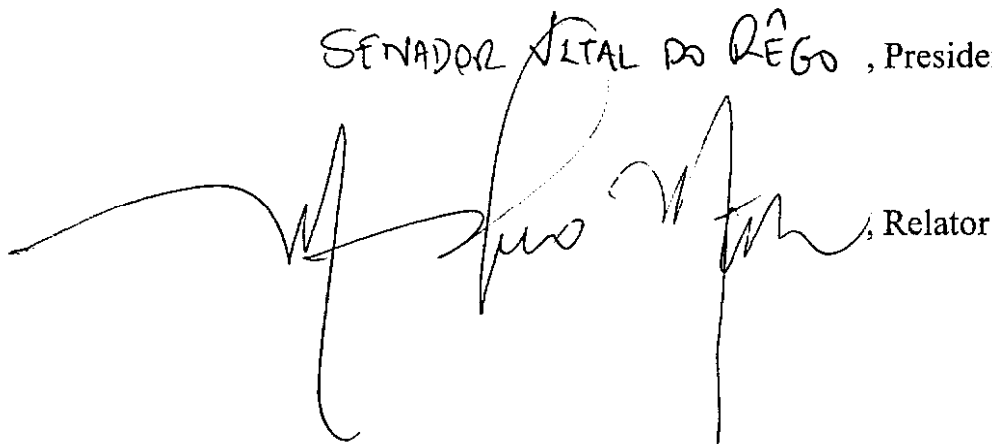 SENADOR VITAL DO RÊGO , Presiden
, Relator